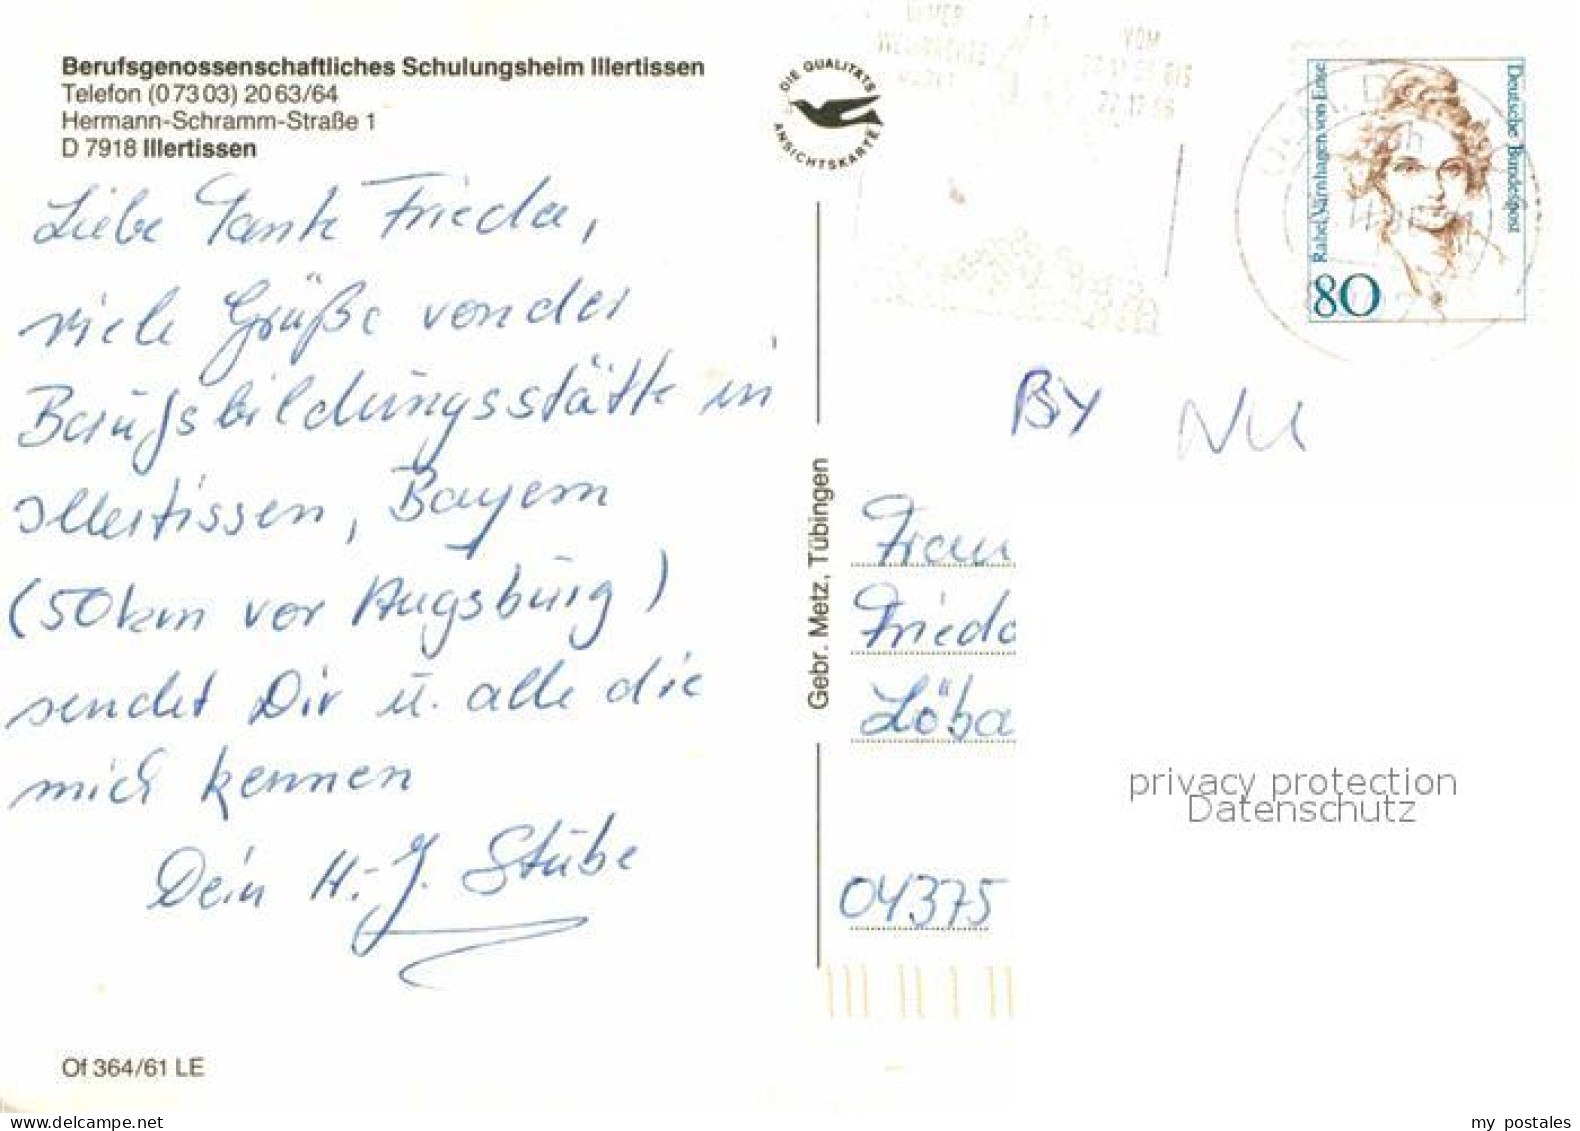 Berufsgenossenschaftliches Schulungsheim Illertissen
Telefon (0 73 03) 20 63/64
Hermann-Schramm-Straße 1
D 7918 Illertissen
Liebe Tante Frieda,
viele Grüße von der
Berufsbildungsstätte in
Illertissen, Bayern
(50km vor Augsburg)
sendet Dir u. alle die
mich kennen
Dein H.-J. Stübe
Of 364/61 LE
DIE QUALITÄTS
ANSICHTSKARTE
Gebr. Metz, Tübingen
VOM
Rahel Varnhagen von Ense
Deutsche Bundespost
80
BY
Frau
Frieda
Löba
04375
privacy protection
Datenschutz
my postales